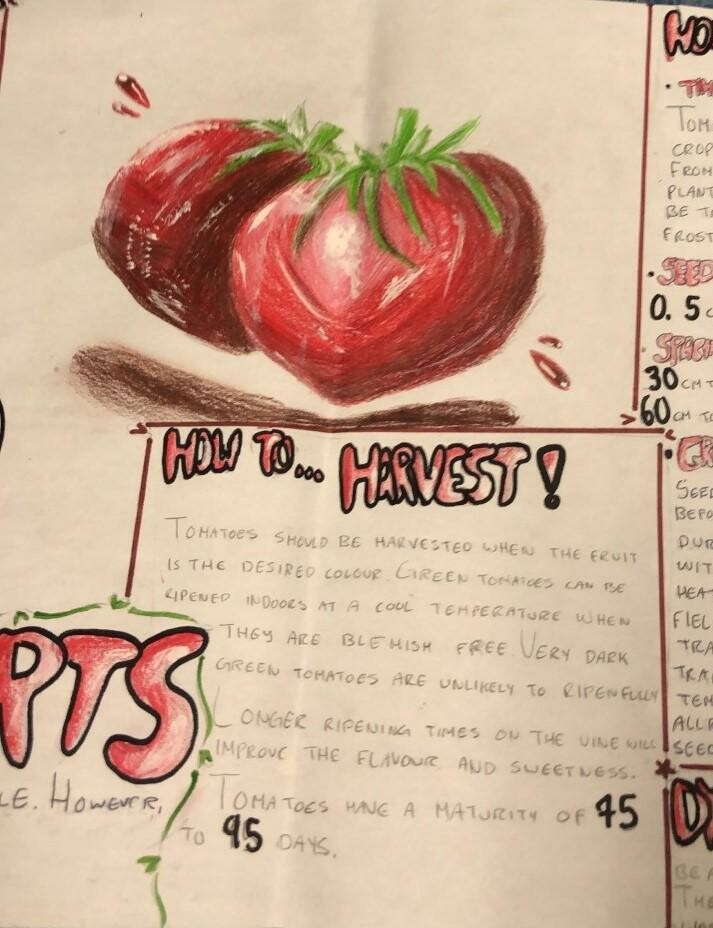 HOW TO... HARVEST!
TOMATOES SHOULD BE HARVESTED WHEN THE FRUIT
IS THE DESIRED COLOUR. GREEN TOMATOES CAN BE
RIPENED INDOORS AT A COOL TEMPERATURE WHEN
THEY ARE BLEMISH FREE. VERY DARK
GREEN TOMATOES ARE UNLIKELY TO RIPEN FULLY
LONGER RIPENING TIMES ON THE VINE WILL
IMPROVE THE FLAVOUR AND SWEETNESS.
TOMATOES HAVE A MATURITY OF 45
TO 95 DAYS.
PTS
LE. HOWEVER,
HO
TIM
TOM
CROP
FROM
PLANT
BE TA
FROST
SEED
0.5 C
SPACIN
30 CM T
60 CM TO
GR
SEED
BEFO
DUR
WIT
HEA
FIEL
TRA
TRA
TEM
ALLR
SEED
DY
BE A
THE